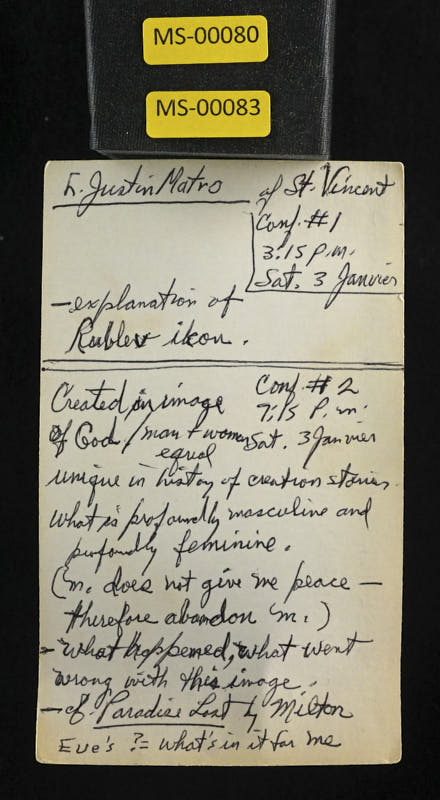 MS-00080
MS-00083
Fr. Justin Matro of St. Vincent
Conf. #1
3:15 P.m.
Sat. 3 Janvier
- explanation of
Rublev ikon.
Created in image Conf. # 2
of God / man + woman 7:15 P.m.
equal Sat. 3 Janvier
unique in history of creation stories.
What is profoundly masculine and
profoundly feminine.
(m. does not give me peace —
therefore abandon m.)
- "what happened," what went
wrong with this image.
- cf. Paradise Lost by Milton
Eve's ?= what's in it for me